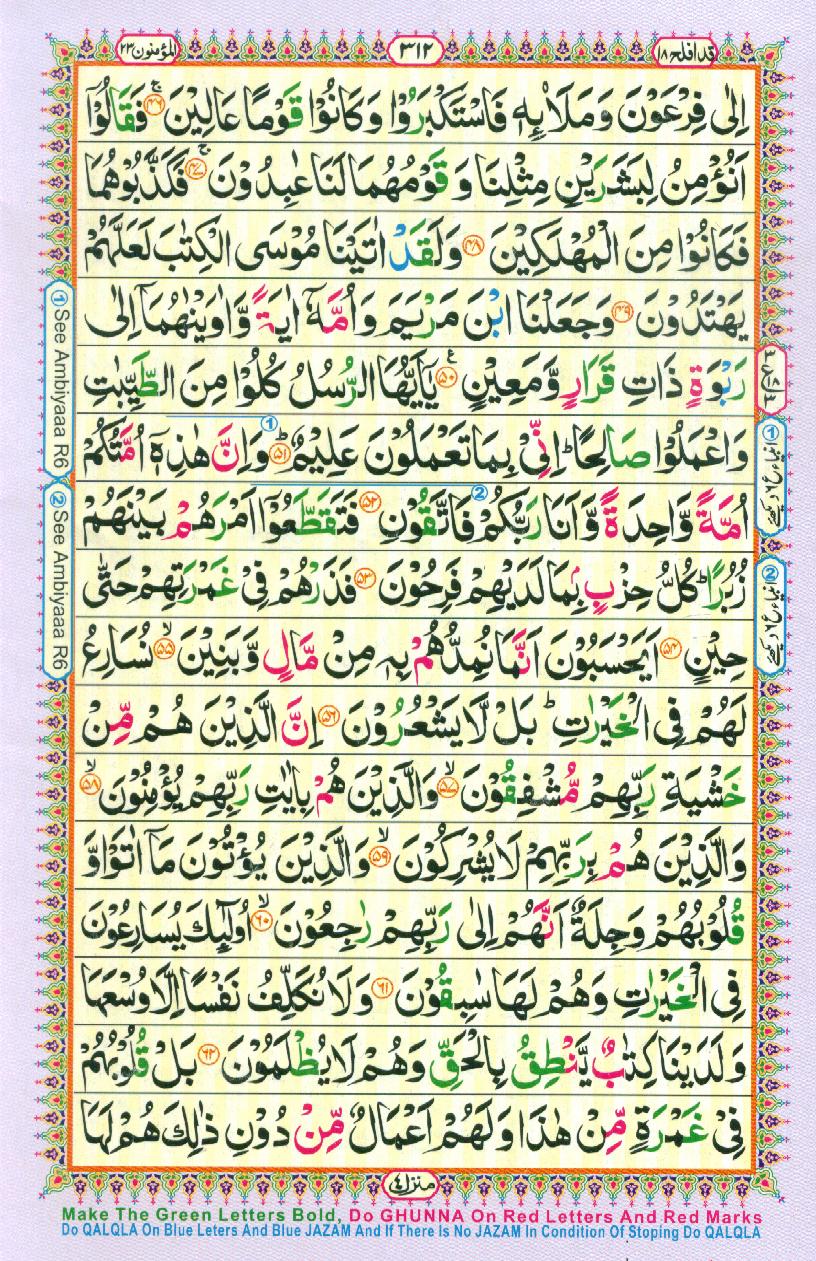 قد افلح ۱۸
۳۱۲
المؤمنون ۲۳
اِلٰى فِرْعَوْنَ وَمَلَا۟ئِهٖ فَاسْتَكْبَرُوْا وَكَانُوْا قَوْمًا عَالِيْنَ ۚ‏﴿۴۶﴾ فَقَالُوْٓا
اَنُؤْمِنُ لِبَشَرَيْنِ مِثْلِنَا وَ قَوْمُهُمَا لَنَا عٰبِدُوْنَ ۚ‏﴿۴۷﴾ فَكَذَّبُوْهُمَا
فَكَانُوْا مِنَ الْمُهْلَكِيْنَ ﴿۴۸﴾ وَلَقَدْ اٰتَيْنَا مُوْسَى الْكِتٰبَ لَعَلَّهُمْ
يَهْتَدُوْنَ ﴿۴۹﴾ وَجَعَلْنَا ابْنَ مَرْيَمَ وَاُمَّهٗٓ اٰيَةً وَّاٰوَيْنٰهُمَآ اِلٰى
رَبْوَةٍ ذَاتِ قَرَارٍ وَّمَعِيْنٍ ﴿۵۰﴾ ع يٰٓاَيُّهَا الرُّسُلُ كُلُوْا مِنَ الطَّيِّبٰتِ
وَاعْمَلُوْا صَالِحًا ؕ اِنِّىْ بِمَا تَعْمَلُوْنَ عَلِيْمٌ ؕ‏﴿۵۱﴾ وَاِنَّ هٰذِهٖٓ اُمَّتُكُمْ
اُمَّةً وَّاحِدَةً وَّاَنَا رَبُّكُمْ فَاتَّقُوْنِ ﴿۵۲﴾ فَتَقَطَّعُوْٓا اَمْرَهُمْ بَيْنَهُمْ
زُبُرًا ؕ كُلُّ حِزْبٍۭ بِمَا لَدَيْهِمْ فَرِحُوْنَ ﴿۵۳﴾ فَذَرْهُمْ فِىْ غَمْرَتِهِمْ حَتّٰى
حِيْنٍ ﴿۵۴﴾ اَيَحْسَبُوْنَ اَنَّمَا نُمِدُّهُمْ بِهٖ مِنْ مَّالٍ وَّبَنِيْنَ ۙ‏﴿۵۵﴾ نُسَارِعُ
لَهُمْ فِى الْخَيْرٰتِ ؕ بَلْ لَّا يَشْعُرُوْنَ ﴿۵۶﴾ اِنَّ الَّذِيْنَ هُمْ مِّنْ
خَشْيَةِ رَبِّهِمْ مُّشْفِقُوْنَ ۙ‏﴿۵۷﴾ وَالَّذِيْنَ هُمْ بِاٰيٰتِ رَبِّهِمْ يُؤْمِنُوْنَ ۙ‏﴿۵۸﴾
وَالَّذِيْنَ هُمْ بِرَبِّهِمْ لَا يُشْرِكُوْنَ ۙ‏﴿۵۹﴾ وَالَّذِيْنَ يُؤْتُوْنَ مَآ اٰتَوْا وَّ
قُلُوْبُهُمْ وَجِلَةٌ اَنَّهُمْ اِلٰى رَبِّهِمْ رٰجِعُوْنَ ۙ‏﴿۶۰﴾ اُولٰٓئِكَ يُسَارِعُوْنَ
فِى الْخَيْرٰتِ وَهُمْ لَهَا سٰبِقُوْنَ ﴿۶۱﴾ وَلَا نُكَلِّفُ نَفْسًا اِلَّا وُسْعَهَا
وَلَدَيْنَا كِتٰبٌ يَّنْطِقُ بِالْحَقِّ وَهُمْ لَا يُظْلَمُوْنَ ﴿۶۲﴾ بَلْ قُلُوْبُهُمْ
فِىْ غَمْرَةٍ مِّنْ هٰذَا وَلَهُمْ اَعْمَالٌ مِّنْ دُوْنِ ذٰلِكَ هُمْ لَهَا
① See Ambiyaaa R6
② See Ambiyaaa R6
منزل ۴
Make The Green Letters Bold, Do GHUNNA On Red Letters And Red Marks
Do QALQLA On Blue Leters And Blue JAZAM And If There Is No JAZAM In Condition Of Stoping Do QALQLA